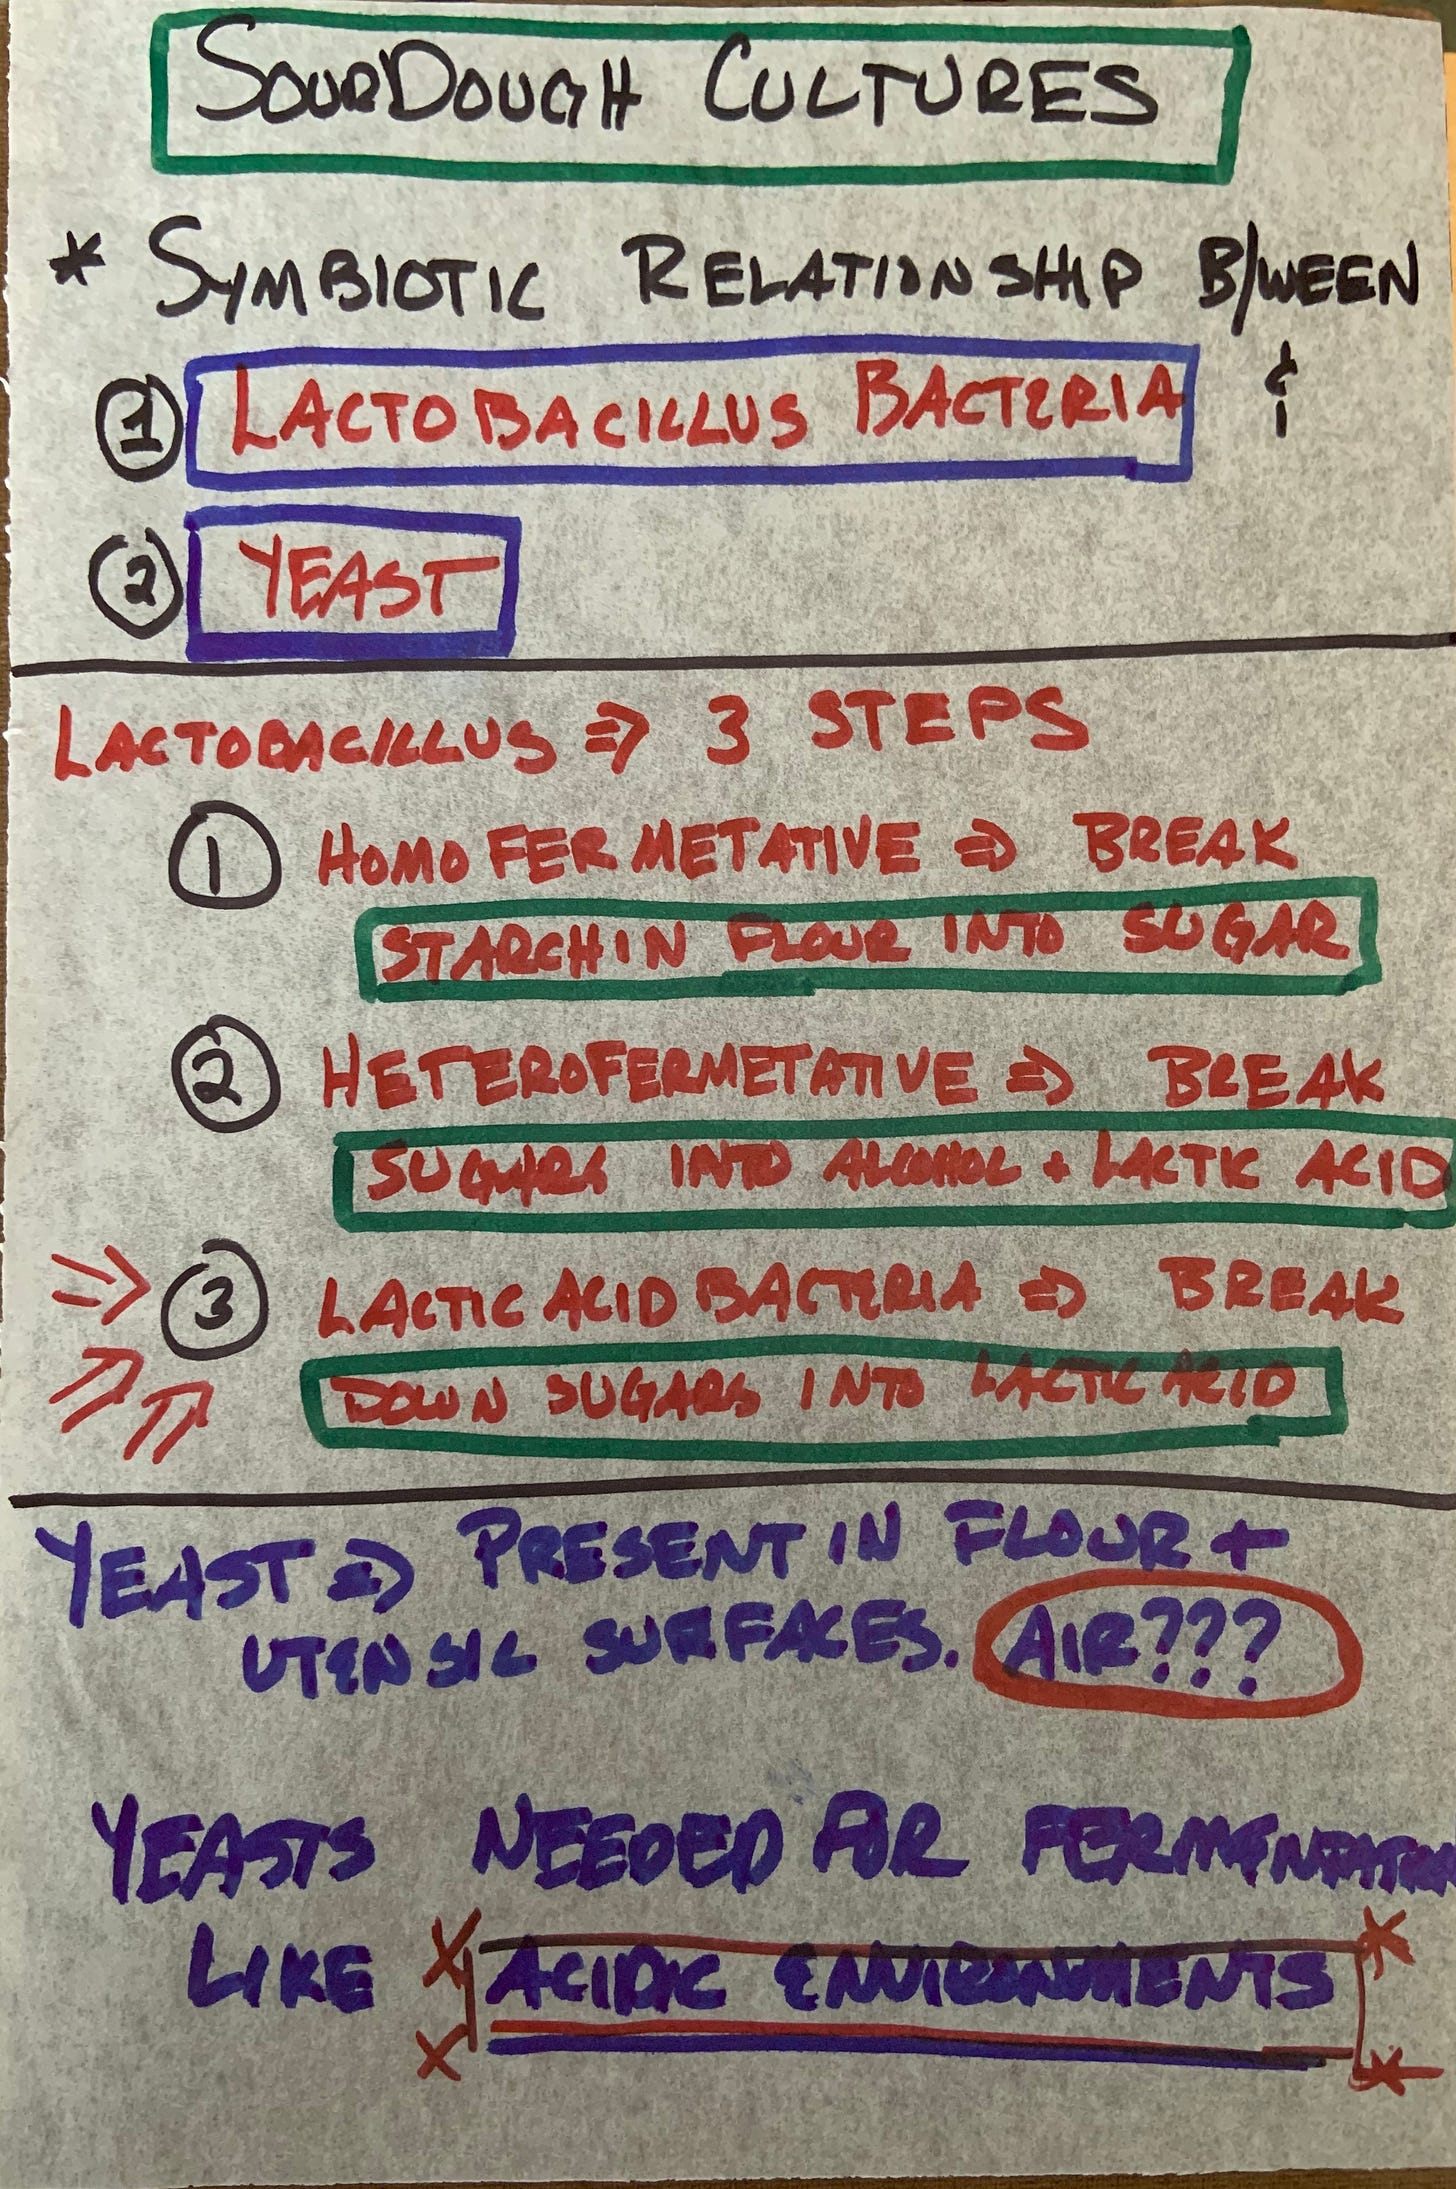 SOURDOUGH CULTURES
* SYMBIOTIC RELATIONSHIP B/WEEN
1 LACTOBACILLUS BACTERIA &
2 YEAST
LACTOBACILLUS ⇒ 3 STEPS
1 HOMOFERMETATIVE ⇒ BREAK
STARCH IN FLOUR INTO SUGAR
2 HETEROFERMETATIVE ⇒ BREAK
SUGARS INTO ALCOHOL + LACTIC ACID
3 LACTIC ACID BACTERIA ⇒ BREAK
DOWN SUGARS INTO LACTIC ACID
YEAST ⇒ PRESENT IN FLOUR +
UTENSIL SURFACES. AIR???
YEASTS NEEDED FOR FERMENTATION
LIKE ACIDIC ENVIRONMENTS